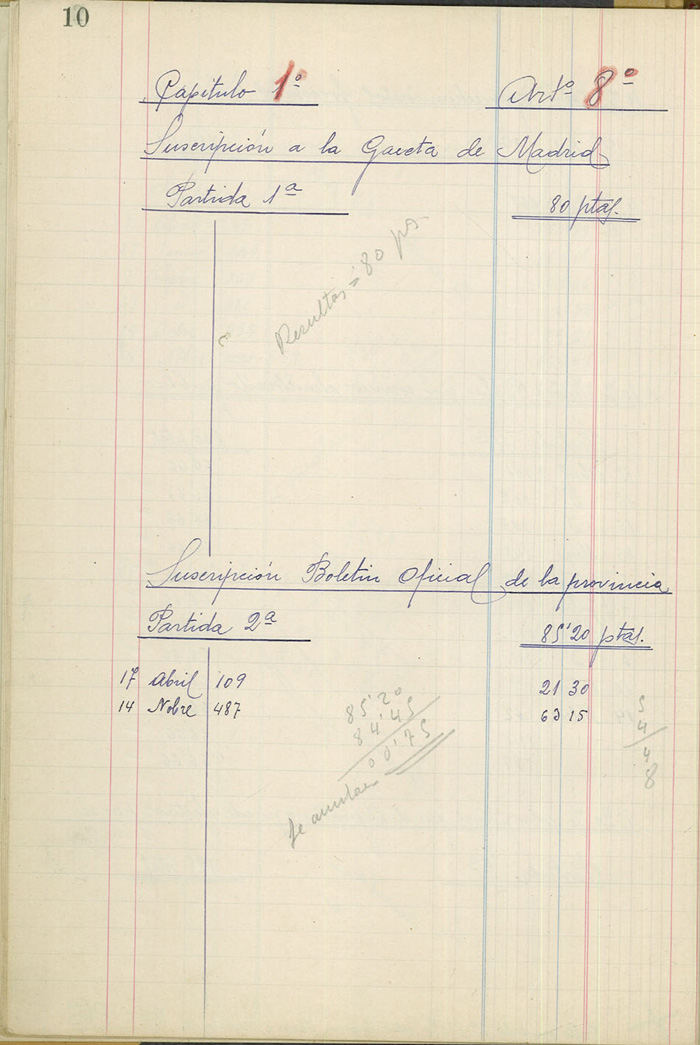 10
Capitulo 1º Artº 8º
Suscripción a la Gaceta de Madrid
Partida 1ª 80 ptas.
Resultas = 80 ps.
Suscripción Boletin Oficial de la provincia
Partida 2ª 85'20 ptas.
17 Abril 109 21 30
14 Nobre 487 63 15
85'20
84'45
00'75
Se anulan
5
4
4
8